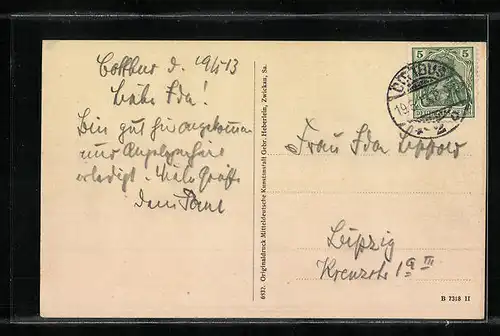 Cottbus d. 19/5 13
Liebe Ida!
Bin gut hier angekommen
und Angelegenheit
erledigt. Viele Grüße
Dein Paul
6532. Originaldruck Mitteldeutsche Kunstanstalt Gebr. Heberlein, Zwickau, Sa.
5 5
COTTBUS
Frau Ida
Leipzig
Kreuzstr 1a III
B 7318 II